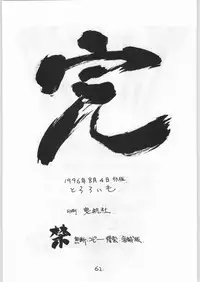 完
1996年8月4日 初版
とろろいも
印刷 
禁 無断・コピー・複製・
62